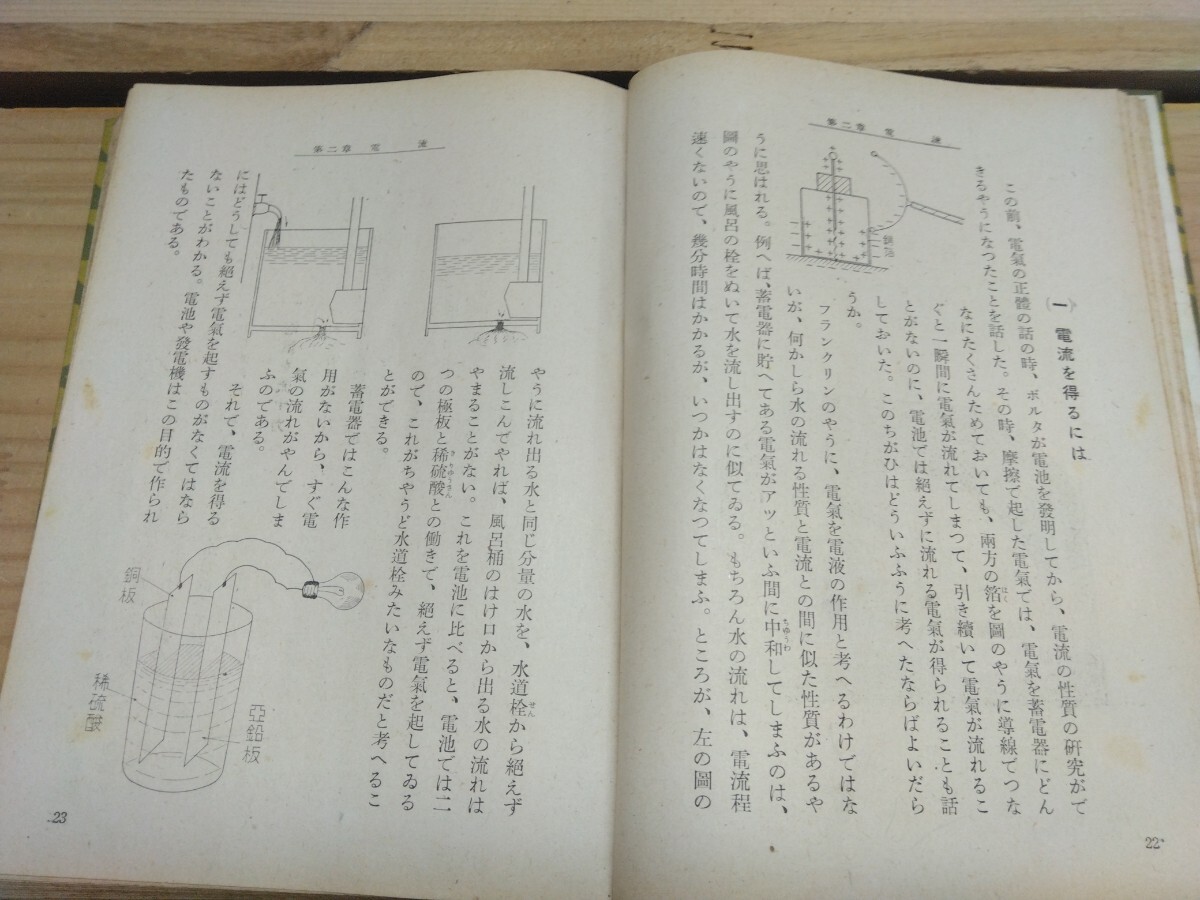 第二章 電流
(一) 電流を得るには
この前、電氣の正體の話の時、ボルタが電池を發明してから、電流の性質の研究がで
きるやうになつたことを話した。その時、摩擦で起した電氣では、電氣を蓄電器にどん
なにたくさんためておいても、兩方の箔を圖のやうに導線でつな
ぐと一瞬間に電氣が流れてしまつて、引き續いて電氣が流れるこ
とがないのに、電池では絶えずに流れる電氣が得られることも話
しておいた。このちがひはどういふふうに考へたならばよいだら
うか。
フランクリンのやうに、電氣を電液の作用と考へるわけではな
いが、何かしら水の流れる性質と電流との間に似た性質があるや
うに思はれる。例へば、蓄電器に貯へてある電氣がアッといふ間に中和してしまふのは、
ちゆうわ
圖のやうに風呂の栓をぬいて水を流し出すのに似てゐる。もちろん水の流れは、電流程
速くないので、幾分時間はかかるが、いつかはなくなつてしまふ。ところが、左の圖の
22
第二章 電流
やうに流れ出る水と同じ分量の水を、水道栓から絶えず
せん
流しこんでやれば、風呂桶のはけ口から出る水の流れは
やまることがない。これを電池に比べると、電池では二
つの極板と稀硫酸との働きで、絶えず電氣を起してゐる
きりゆうさん
ので、これがちやうど水道栓みたいなものだと考へるこ
とができる。
蓄電器ではこんな作
用がないから、すぐ電
氣の流れがやんでしま
ふのである。
それで、電流を得る
にはどうしても絶えず電氣を起すものがなくてはなら
ないことがわかる。電池や發電機はこの目的で作られ
たものである。
銅板
稀硫酸
亞鉛板
23